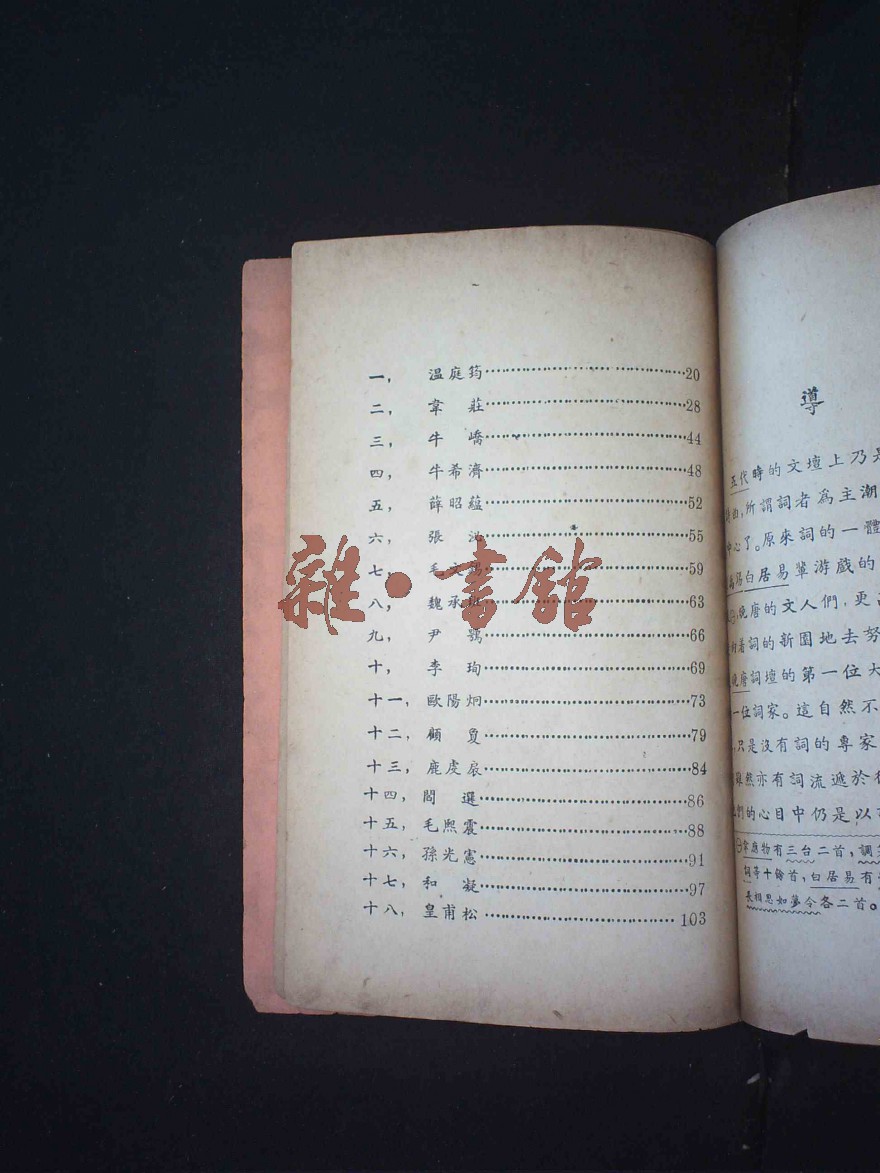 一, 温庭筠 20
二, 韋 莊 28
三, 牛 嶠 44
四, 牛希濟 48
五, 薛昭蘊 52
六, 張 泌 55
七, 毛文錫 59
八, 魏承班 63
九, 尹 鶚 66
十, 李 珣 69
十一, 歐陽炯 73
十二, 顧 敻 79
十三, 鹿虔扆 84
十四, 閻 選 86
十五, 毛熙震 88
十六, 孫光憲 91
十七, 和 凝 97
十八, 皇甫松 103
雜·書館
導
五代時的文壇上乃是
所謂詞者為主潮
中心了。原來詞的一體
白居易輩游戲的
晚唐的文人們,更
着詞的新園地去努
晚唐詞壇的第一位大
一位詞家。這自然不
只是沒有詞的專家
雖然亦有詞流遞於
們的心目中仍是以
應物有三台二首,調
詞等十餘首,白居易有
長相思如夢令各二首。